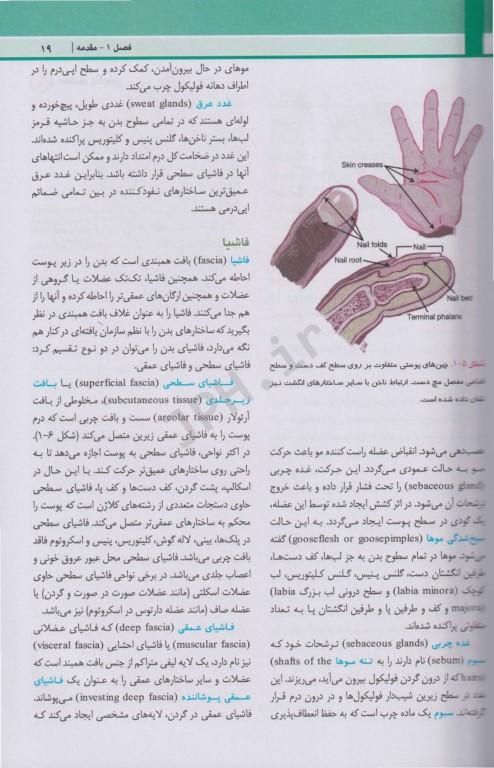 فصل ۱ - مقدمه | ۱۹
Skin creases
Nail folds
Nail
Nail root
Nail bed
Terminal phalanx
شکل ۵-۱. چین‌های پوستی متفاوت بر روی سطح کف دست و سطح
قدامی مفصل مچ دست. ارتباط ناخن با سایر ساختارهای انگشت نیز
نشان داده شده است.
عصب‌دهی می‌شود. انقباض عضله راست کننده مو باعث حرکت
مو به حالت عمودی می‌گردد. این حرکت، غده چربی
(sebaceous gland) را تحت فشار قرار داده و باعث خروج
ترشحات آن می‌شود. در اثر کشش ایجاد شده توسط این عضله،
یک گودی در سطح پوست ایجاد می‌گردد. به این حالت
سیخ‌شدگی موها (gooseflesh or goosepimples) گفته
می‌شود. موها در تمام سطوح بدن به جز لب‌ها، کف دست‌ها،
طرفین انگشتان دست، گلنس پنیس، گلنس کلیتوریس، لب
کوچک (labia minora) و سطح درونی لب بزرگ (labia
majora) و کف و طرفین پا و طرفین انگشتان پا به تعداد
متفاوتی پراکنده شده‌اند.
غده چربی (sebaceous glands) ترشحات خود که
سبوم (sebum) نام دارند را به تنه موها (shafts of the
hairs) که از درون گردن فولیکول بیرون می‌آید، می‌ریزند. این
غدد در سطح زیرین شیب‌دار فولیکول‌ها و در درون درم قرار
گرفته‌اند. سبوم یک ماده چرب است که به حفظ انعطاف‌پذیری
موهای در حال بیرون‌آمدن، کمک کرده و سطح اپی‌درم را در
اطراف دهانه فولیکول چرب می‌کند.
غدد عرق (sweat glands) غددی طویل، پیچ‌خورده و
لوله‌ای هستند که در تمامی سطوح بدن به جز حاشیه قرمز
لب‌ها، بستر ناخن‌ها، گلنس پنیس و کلیتوریس پراکنده شده‌اند.
این غدد در ضخامت کل درم امتداد دارند و ممکن است انتهاهای
آنها در فاشیای سطحی قرار داشته باشد. بنابراین غدد عرق
عمیق‌ترین ساختارهای نفوذکننده در بین تمامی ضمائم
اپی‌درمی هستند.
فاشیا
فاشیا (fascia) بافت همبندی است که بدن را در زیر پوست
احاطه می‌کند. همچنین فاشیا، تک‌تک عضلات یا گروهی از
عضلات و همچنین ارگان‌های عمقی‌تر را احاطه کرده و آنها را از
هم جدا می‌کنند. فاشیا را به عنوان غلاف بافت همبندی در نظر
بگیرید که ساختارهای بدن را با نظم سازمان یافته‌ای در کنار هم
نگه می‌دارد، فاشیای بدن را می‌توان در دو نوع تقسیم کرد:
فاشیای سطحی و فاشیای عمقی.
فاشیای سطحی (superficial fascia) یا بافت
زیرجلدی (subcutaneous tissue)، مخلوطی از بافت
آرئولار (areolar tissue) سست و بافت چربی است که درم
پوست را به فاشیای عمقی زیرین متصل می‌کند (شکل ۶-۱).
در اکثر نواحی، فاشیای سطحی به پوست اجازه می‌دهد تا به
راحتی روی ساختارهای عمیق‌تر حرکت کند. با این حال در
اسکالپ، پشت گردن، کف دست‌ها و کف پا، فاشیای سطحی
حاوی دستجات متعددی از رشته‌های کلاژن است که پوست را
محکم به ساختارهای عمقی‌تر متصل می‌کند. فاشیای سطحی
در پلک‌ها، بینی، لاله گوش، کلیتوریس، پنیس و اسکروتوم فاقد
بافت چربی می‌باشد. فاشیای سطحی محل عبور عروق خونی و
اعصاب جلدی می‌باشد. در برخی نواحی فاشیای سطحی حاوی
عضلات اسکلتی (مانند عضلات صورت در صورت و گردن) یا
عضله صاف (مانند عضله دارتوس در اسکروتوم) نیز می‌باشد.
فاشیای عمقی (deep fascia) که فاشیای عضلانی
(muscular fascia) یا فاشیای احشایی (visceral fascia)
نیز نام دارد، یک لایه لیفی متراکم از جنس بافت همبند است که
عضلات و سایر ساختارهای عمقی را به عنوان یک فاشیای
عمقی پوشاننده (investing deep fascia) می‌پوشاند.
فاشیای عمقی در گردن، لایه‌های مشخصی ایجاد می‌کند که
JPH.ir